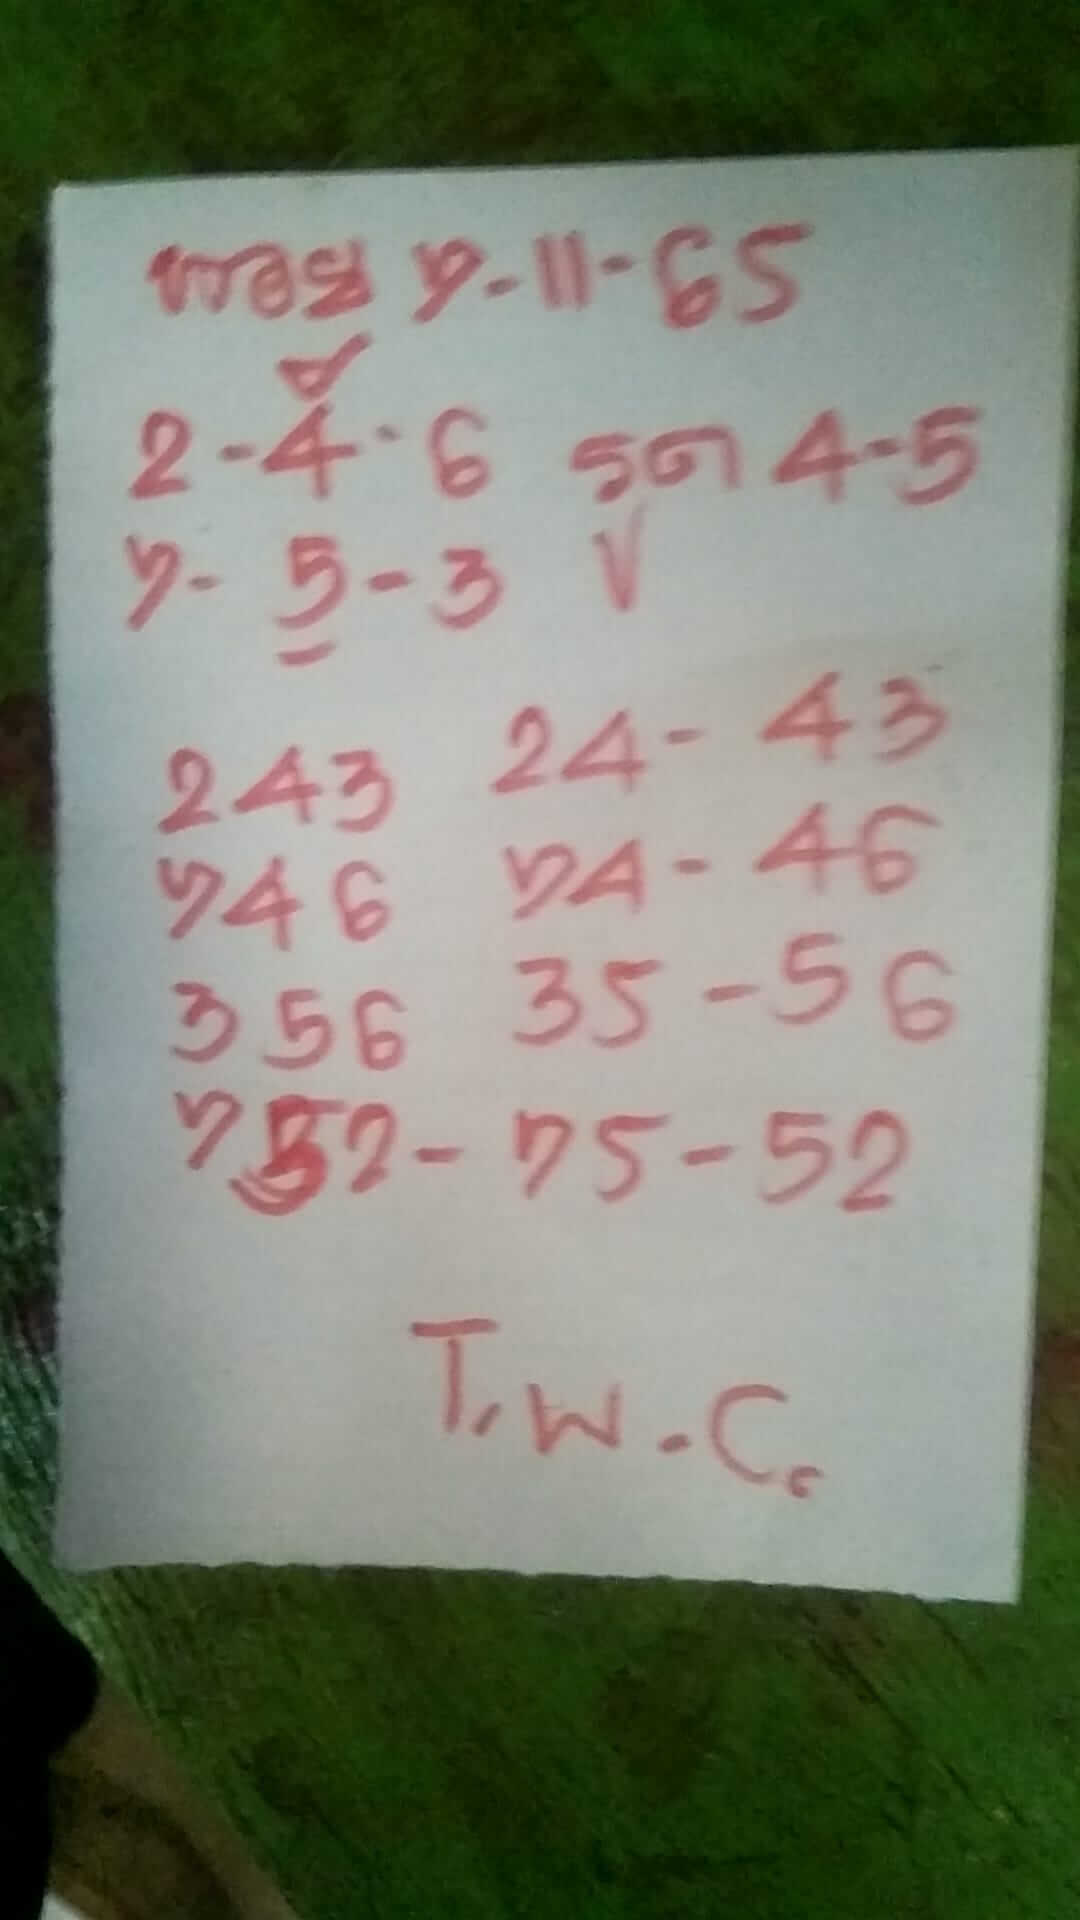 หวย 7-11-65
2-4-6 รูด 4-5
7-5-3
243 24-43
746 74-46
356 35-56
752-75-52
T.W.C.